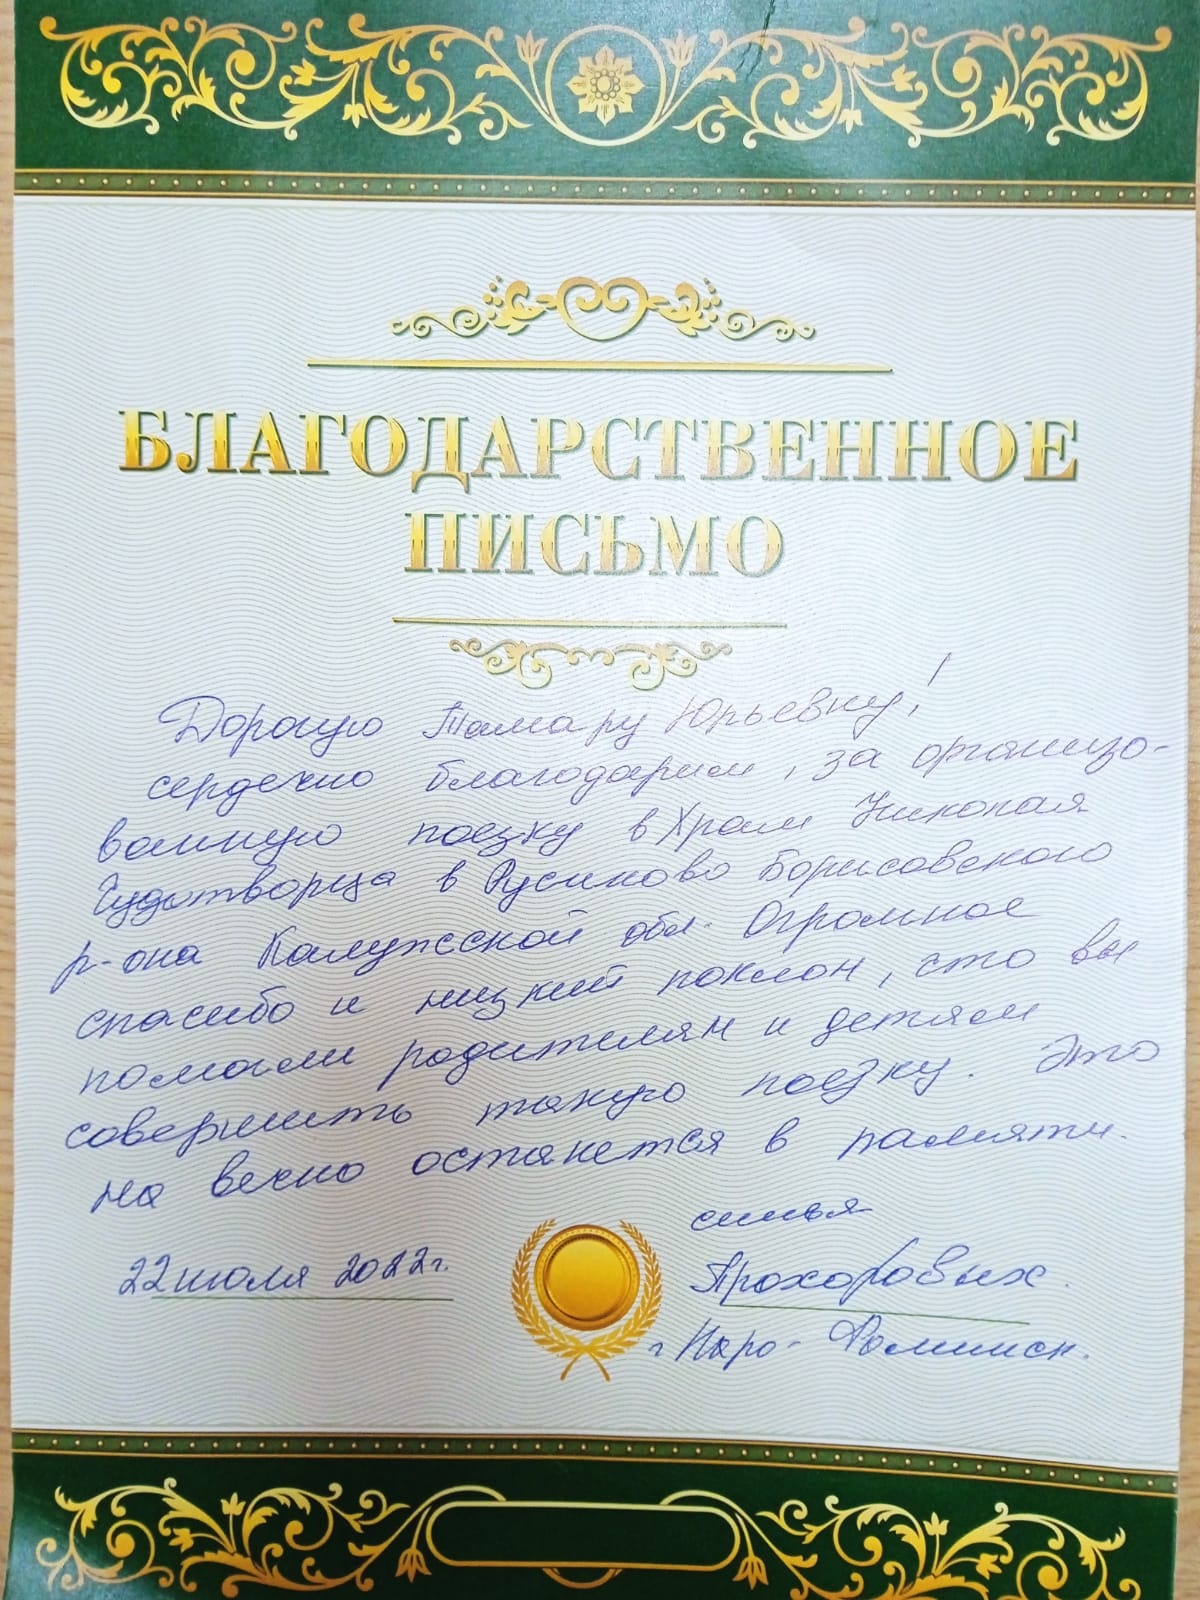 БЛАГОДАРСТВЕННОЕ
ПИСЬМО
Дорогую Тамару Юрьевну!
сердечно благодарим, за организо-
ванную поезку в Храм Николая
Чудотворца в Русиново Борисовского
р-она Калужской обл. Огромное
спасибо и низкий поклон, сто вы
помогли родителям и детям
совершить такую поезку. Это
на вечно останется в памяти.
семья
22 июля 2022г. Прохоровых.
г Наро-Фоминск.